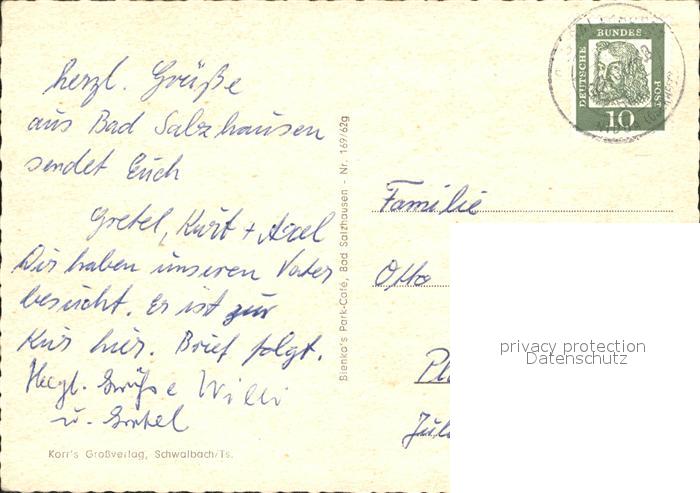 herzl. Grüße
aus Bad Salzhausen
sendet Euch
Gretel, Kurt + Axel
Wir haben unseren Vater
besucht. Er ist zur
Kur hier. Brief folgt.
Herzl. Grüße Willi
u. Gretel
Korr's Großverlag, Schwalbach/Ts.
Bienko's Park-Café, Bad Salzhausen - Nr. 169/62g
DEUTSCHE BUNDES POST
10
Familie
Otto
privacy protection
Datenschutz